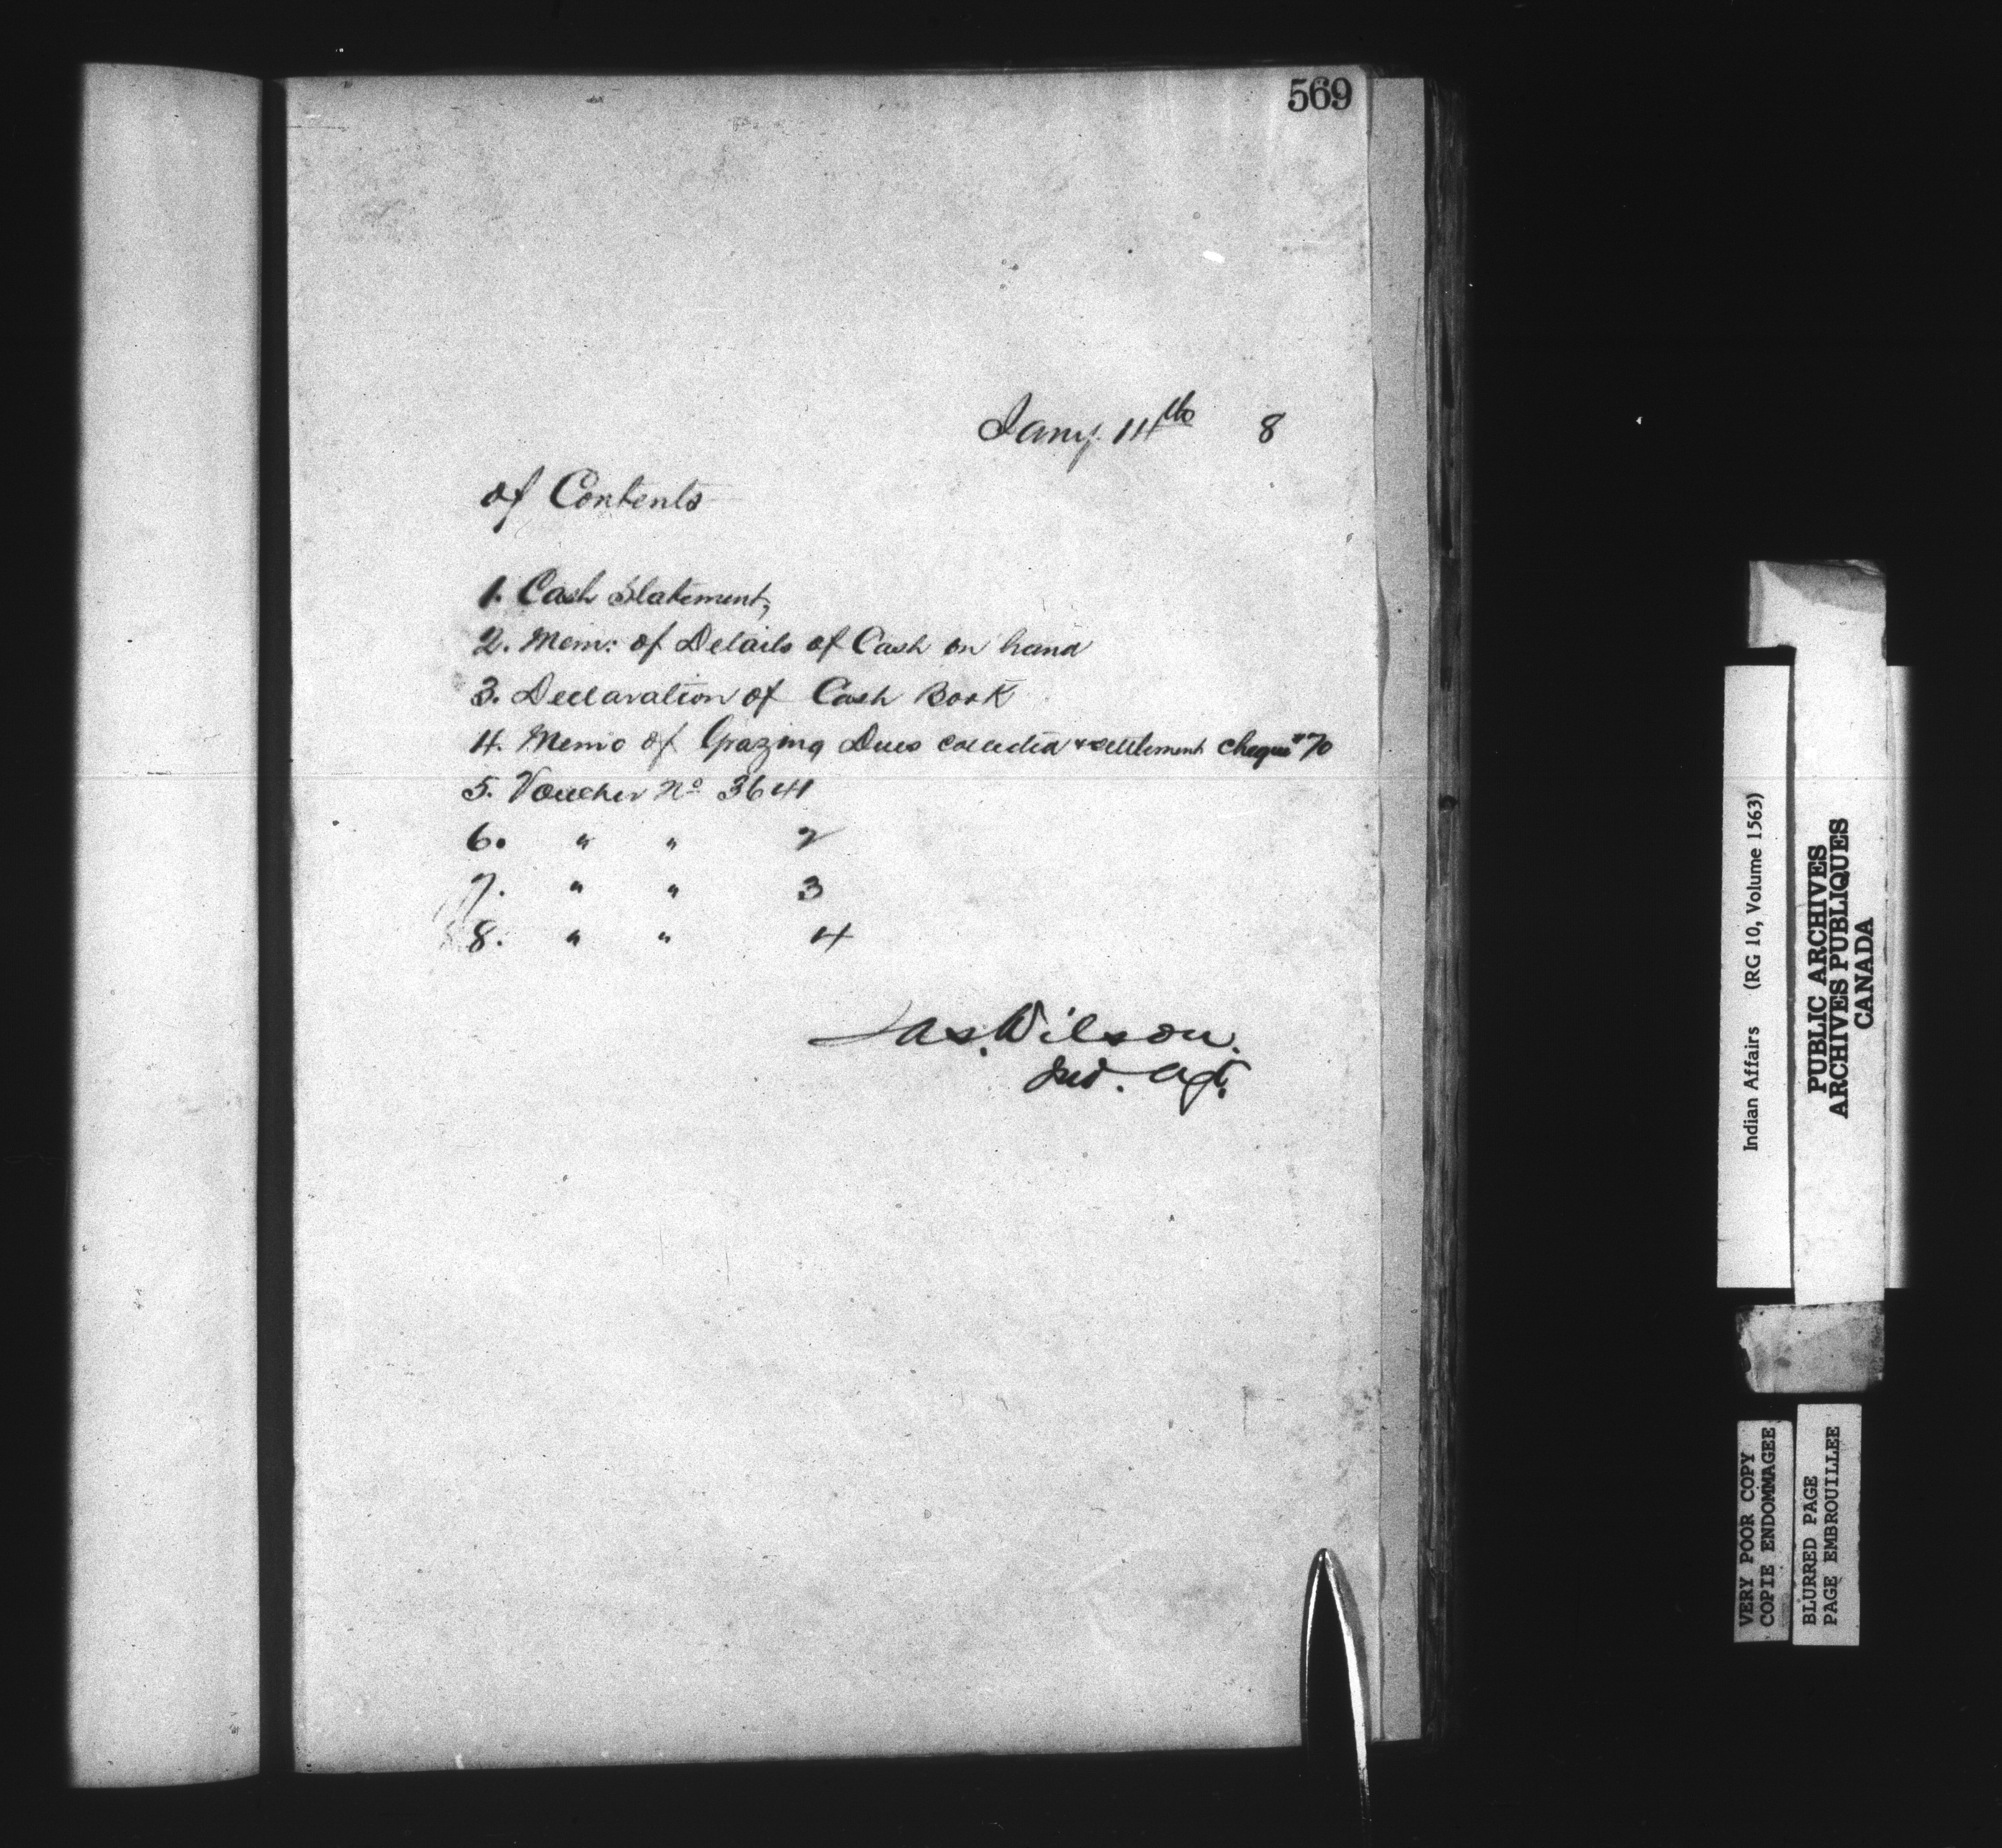 569
Jany. 14th 8
of Contents
1. Cash Statement,
2. Mem: of Details of Cash on hand
3. Declaration of Cash Book
4. Memo of Grazing Dues collected & settlement cheque $70
5. Voucher No 3641
6. " " 2
7. " " 3
8. " " 4
Jas. Wilson.
Ind. Agt.
Indian Affairs (RG 10, Volume 1563)
PUBLIC ARCHIVES
ARCHIVES PUBLIQUES
CANADA
VERY POOR COPY
COPIE ENDOMMAGEE
BLURRED PAGE
PAGE EMBROUILLEE